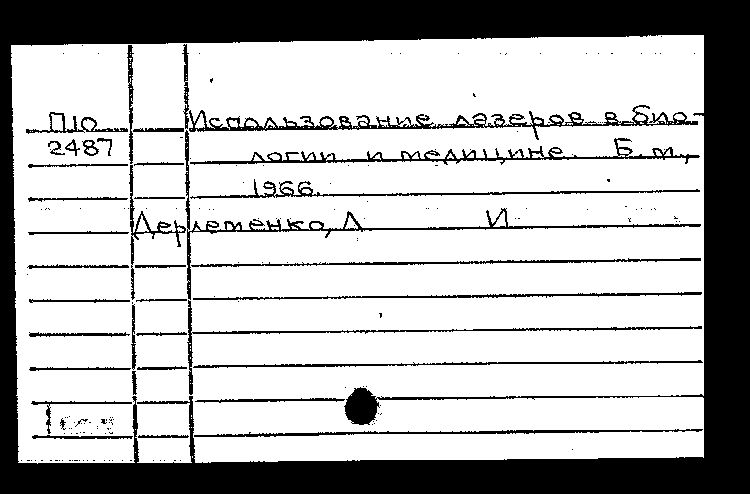 П10 Использование лазеров в био-
2487 логии и медицине. Б.м.,
1966.
Дерлеменко, Л И